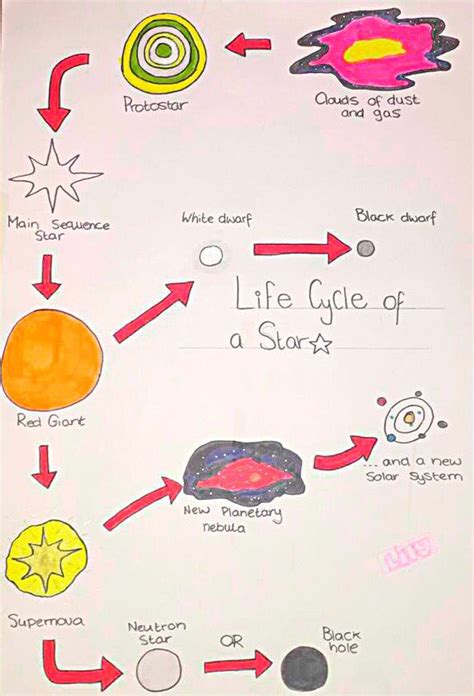 Protostar
Clouds of dust
and gas
Main Sequence
Star
White dwarf
Black dwarf
Life Cycle of
a Star
Red Giant
New Planetary
nebula
... and a new
Solar System
Lily
Supernova
Neutron
Star
OR
Black
hole